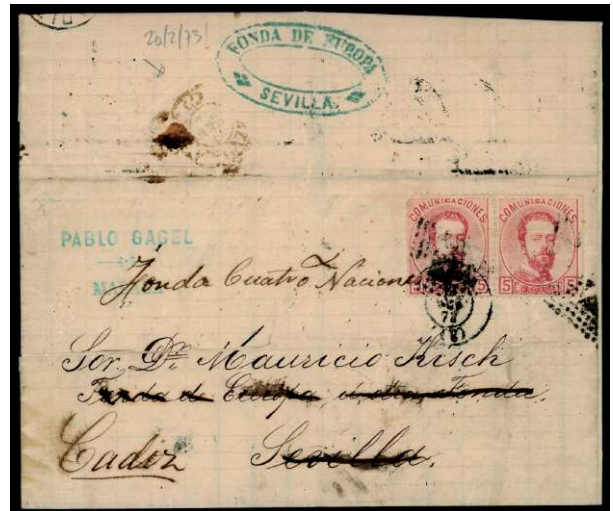 20/2/73
FONDA DE EUROPA
SEVILLA.
PABLO GAGEL
COMUNICACIONES
COMUNICACIONES
5 5
5 5
73
Fonda Cuatro Naciones
Sor. Dn. Mauricio Kisch
Fonda de Europa, ú otra Fonda.
Cadiz Sevilla.